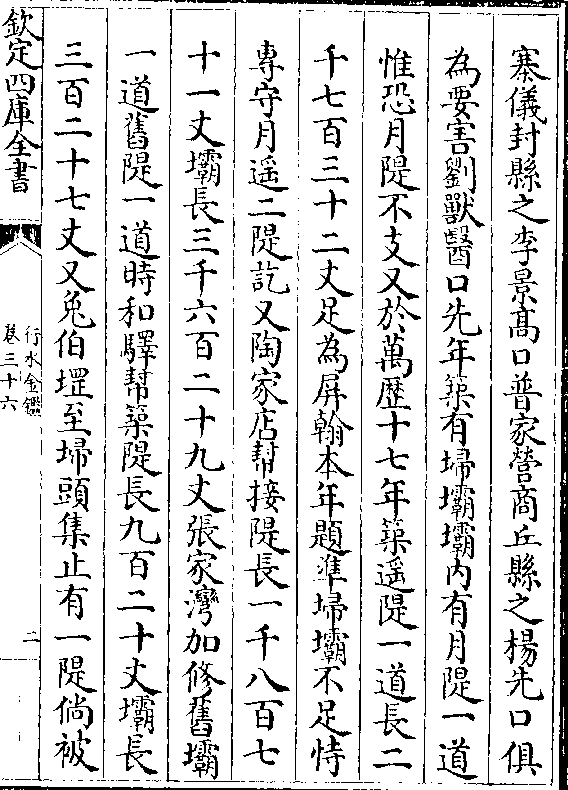 寨儀封縣之李景髙口普家營商丘縣之楊先口俱
為要害劉獸醫口先年築有埽壩壩内有月隄一道
惟恐月隄不支又於萬歴十七年築遥隄一道長二
千七百三十二丈足為屏翰本年題準埽壩不足恃
專守月遥二隄訖又陶家店幇接隄長一千八百七
十一丈壩長三千六百二十九丈張家灣加修舊壩
一道舊隄一道時和驛幇築隄長九百二十丈壩長
三百二十七丈又兔伯堽至埽頭集止有一隄倘被
欽定四庫全書
行水金鑑
卷三十六
二